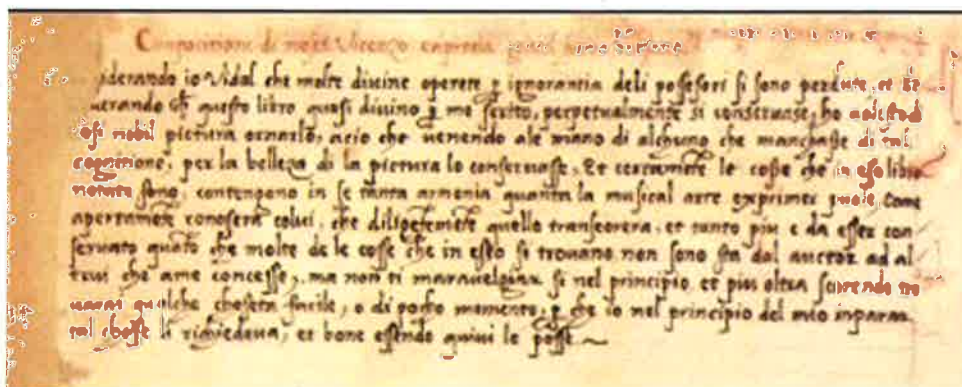 Compositione di meser Vicenzo capirola
siderando io Vidal che molte divine operete p ignorantia deli possesori si sono perdute, et de
uerando ch questo libro quasi divino p me scrito, perpetualmente si conservase, ho
cosi nobil pictura ornarlo, acio che venendo ale mano di alchuno che manchasse di tal
cognitione, per la belleza di la pictura lo conservasse, Et certamente le cosse che in esso libro
notate sono, contengono in se tanta armonia quanta la musical arte exprimer puole, Come
apertamēte conoserà colui, che diligētemēte quello transcorera, et tanto piu e da esser con
servato quāto che molte de le cosse che in esso si trovano non sono sta dal auctor ad al
trui che ame concesse, ma non ti maravelgiar si nel principio et piu oltra scorendo tro
uarai qualche choseta facile, o di pocho momento, p che io nel principio del mio inparar
tal chosse li richiedeva, et bone essendo quivi le posse